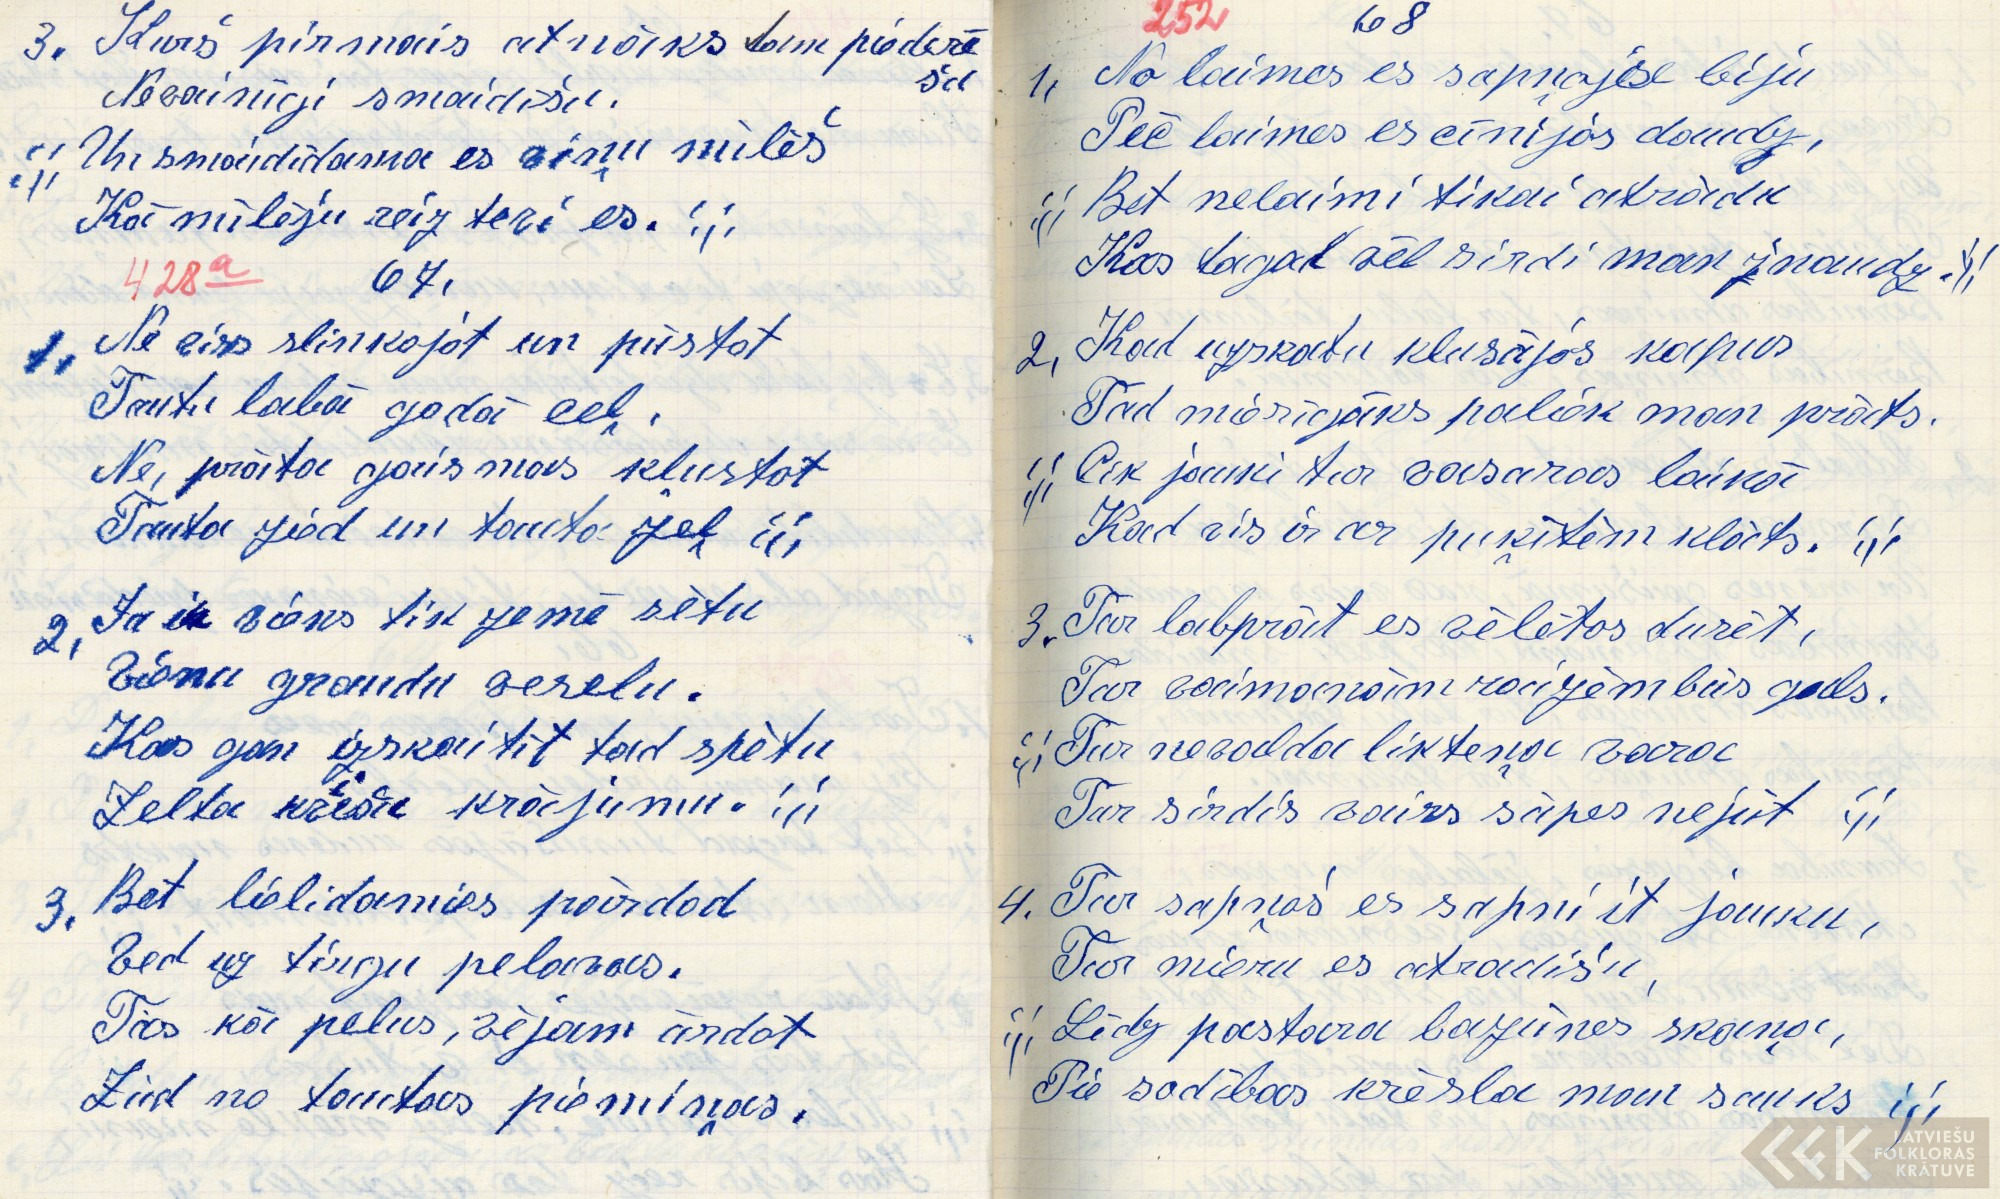 3. Kurš pirmais atnāks tam piederē
šu
Nevainīgi smaidīšu.
;/; Un smaidīdama es viņu mīlēš
Kā mīlēju reiz tevi es. ;/;
428a 67.
1. Ne viss slinkojot un pūstot
Tautu labā godā ceļ.
Ne, prāta gaismas kļustot
Tauta zied un tauta zeļ ;/;
2, Ja ik viens tik zemē sētu
Vienu graudu veselu.
Kas gan izskaitīt tad spētu
Zelta krāšu krājumu. ;/;
3. Bet lielīdamies pārdod
Ved uz tirgu pelavas.
Tās kā pelus, vējam ārdot
Zūd no tautas piemiņas.
252 68
1, No laimes es sapņojse biju
Pēc laimes es cīnijos daudz,
;/; Bet nelaimi tikai atradu
Kas tagad vēl sirdi man žnaudz. ;/;
2, Kad uzskatu klusājos kapus
Tad mierīgāks paliek man prāts.
;/; Cik jauki tur vasaras laikā
Kad vis ir ar puķītēm klāts. ;/;
3. Tur labprāt es vēlētos dusēt,
Tur vaimanām raizēm būs gals.
;/; Tur nevalda likteņa vara
Tur sirdis vairs sāpes nejūt ;/;
4. Tur sapņoš es sapni it jauku,
Tur mieru es atradīšu,
;/; Līdz pastara bazūnes skaņai,
Pie sodības krēsla man sauks ;/;
LATVIEŠU
FOLKLORAS
KRĀTUVE